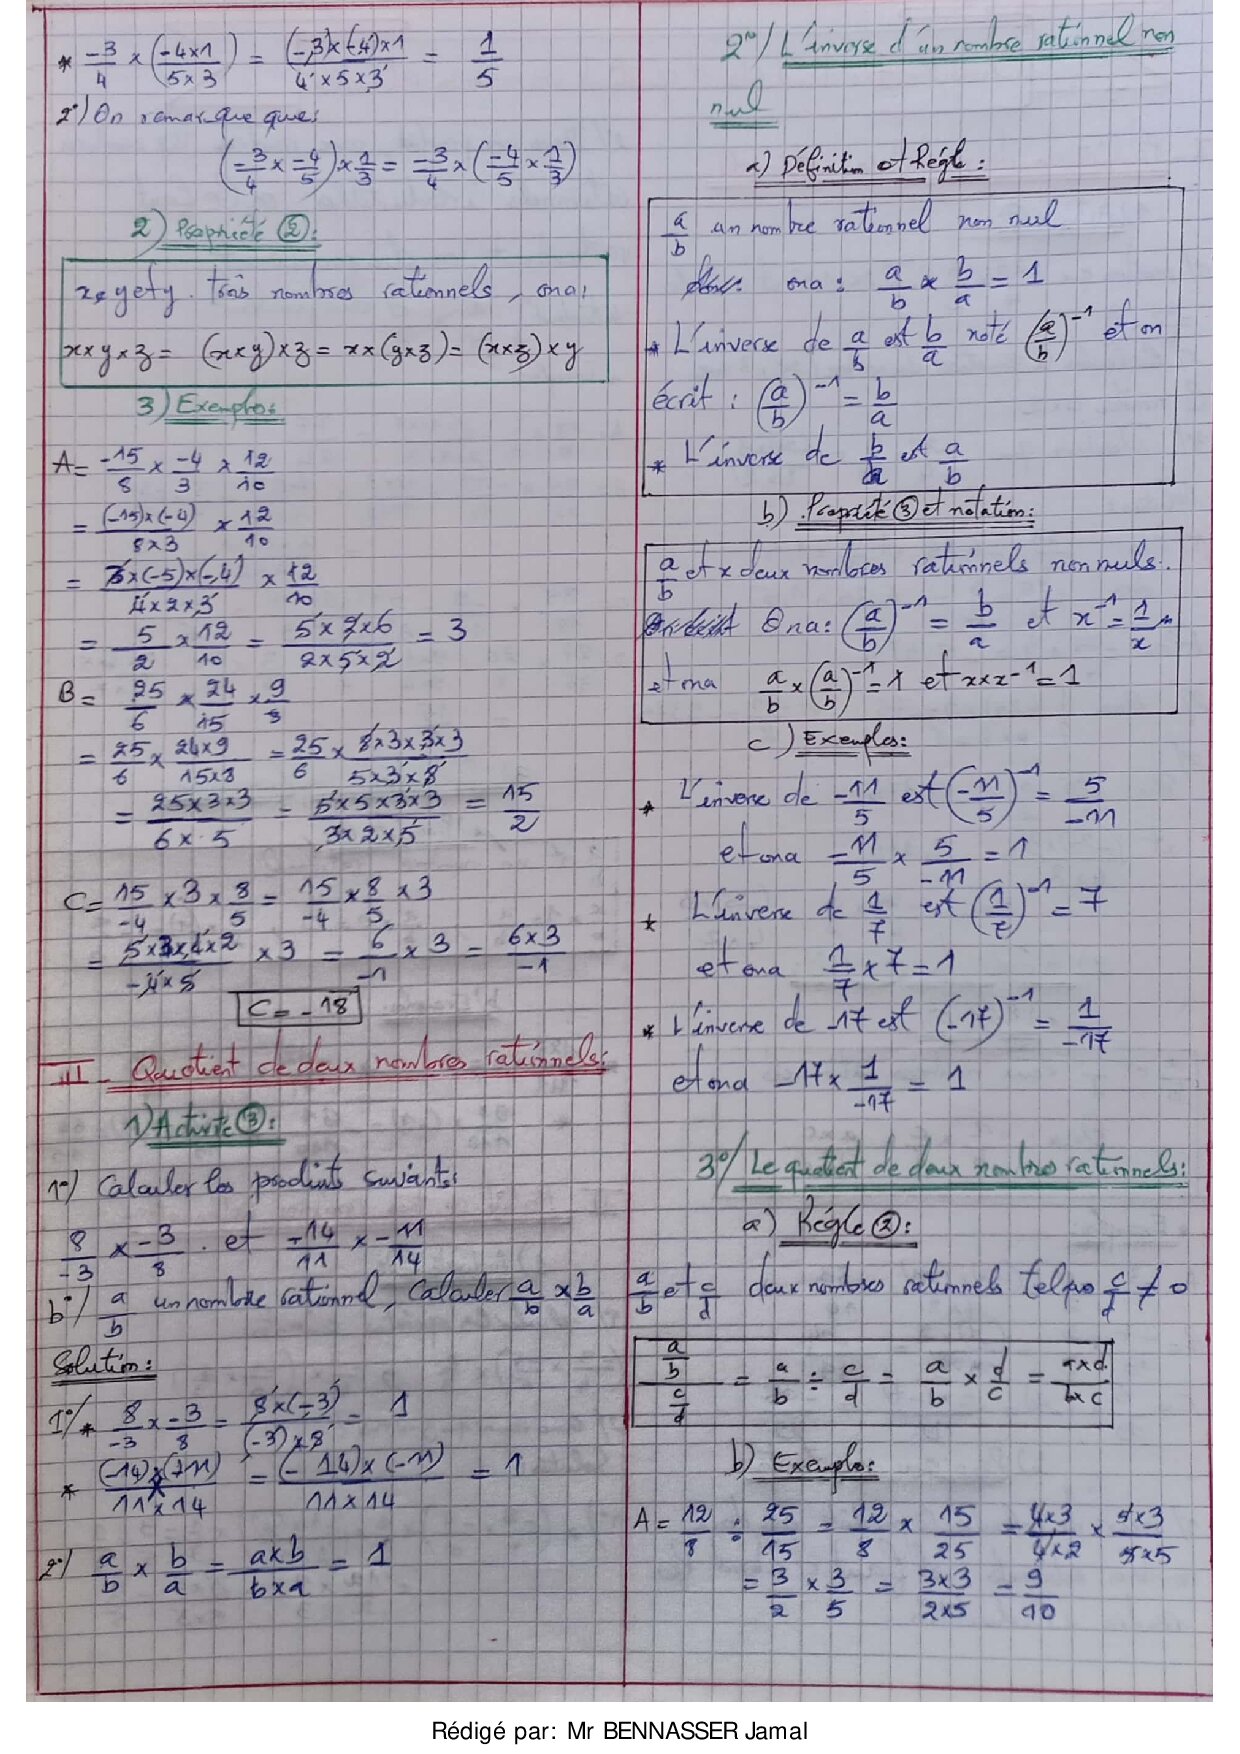 * -3/4 × (-4×1 / 5×3) = (-3)×(-4)×1 / 4×5×3 = 1/5
2°) On remarque que:
(-3/4 × -4/5) × 1/3 = -3/4 × (-4/5 × 1/3)
2) Propriété ②:
x et y et z. trois nombres rationnels, on a:
x×y×z = (x×y)×z = x×(y×z) = (x×z)×y
3) Exemples:
A = -15/8 × -4/3 × 12/10
= (-15)×(-4) / 8×3 × 12/10
= 3×(-5)×(-4) / 4×2×3 × 12/10
= 5/2 × 12/10 = 5×2×6 / 2×5×2 = 3
B = 25/6 × 24/15 × 9/8
= 25/6 × 24×9 / 15×8 = 25/6 × 8×3×3×3 / 5×3×8
= 25×3×3 / 6×5 = 5×5×3×3 / 3×2×5 = 15/2
C = 15/-4 × 3 × 8/5 = 15/-4 × 8/5 × 3
= 5×3×4×2 / -4×5 × 3 = 6/-1 × 3 = 6×3 / -1
C = -18
II - Quotient de deux nombres rationnels:
1) Activité ③:
1°) Calculer les produits suivants:
8/-3 × -3/8 . et -14/11 × -11/14
b°/ a/b un nombre rationnel, Calculer a/b × b/a
Solution:
1°/ * 8/-3 × -3/8 = 8×(-3) / (-3)×8 = 1
* (-14)×(-11) / 11×14 = (-14)×(-11) / 11×14 = 1
2°/ a/b × b/a = a×b / b×a = 1
2°/ L'inverse d'un nombre rationnel non
nul
a) Définition et Régle:
a/b un nombre rationnel non nul
on a: a/b × b/a = 1
* L'inverse de a/b est b/a noté (a/b)⁻¹ et on
écrit : (a/b)⁻¹ = b/a
* L'inverse de b/a est a/b
b) Propriété ③ et notation:
a/b et x deux nombres rationnels non nuls.
On a: (a/b)⁻¹ = b/a et x⁻¹ = 1/x
et on a a/b × (a/b)⁻¹ = 1 et x × x⁻¹ = 1
c) Exemples:
* L'inverse de -11/5 est (-11/5)⁻¹ = 5/-11
et on a -11/5 × 5/-11 = 1
* L'inverse de 1/7 est (1/7)⁻¹ = 7
et on a 1/7 × 7 = 1
* L'inverse de -17 est (-17)⁻¹ = 1/-17
et on a -17 × 1/-17 = 1
3°/ Le quotient de deux nombres rationnels:
a) Régle ②:
a/b et c/d deux nombres rationnels tel que c/d ≠ 0
(a/b)/(c/d) = a/b ÷ c/d = a/b × d/c = a×d / b×c
b) Exemples:
A = 12/8 ÷ 25/15 = 12/8 × 15/25 = 4×3 / 4×2 × 5×3 / 5×5
= 3/2 × 3/5 = 3×3 / 2×5 = 9/10
Rédigé par: Mr BENNASSER Jamal